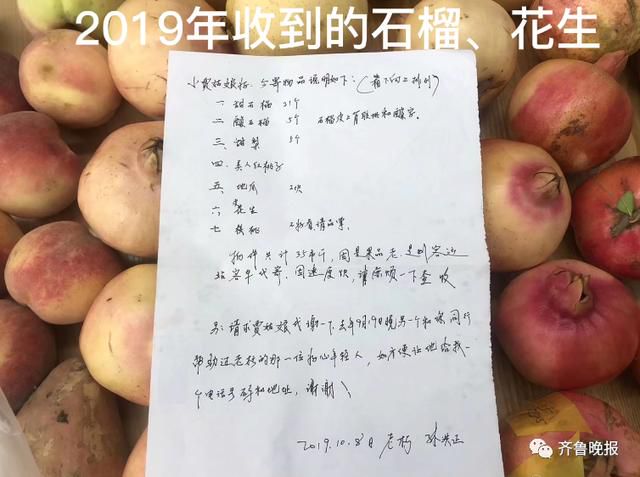 2019年收到的石榴、花生
小贾姑娘好、今寄物品说明如下：(箱下向上排列)
一 甜石榴 21个
二 酸石榴 5个 石榴皮上有胶纸和酸字。
三 甜梨 5个
四. 美人红桃子
五. 地瓜 2块
六 花生
七 核桃
物件共计35市斤，因是果品

站客车代寄. 因速度快，请麻烦一下查收
另：请求贾姑娘代谢一下，去年9月19日晚另一个和你同行
帮助过老杨的那一位热心年轻人，如方便让他给我一
个电话号码和地址，谢谢！
2019.10.8日 老杨
齐鲁晚报